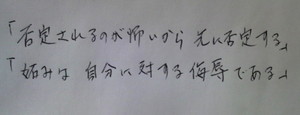 「否定されるのが怖いから 先に否定する」
「妬みは 自分に対する 侮辱である」